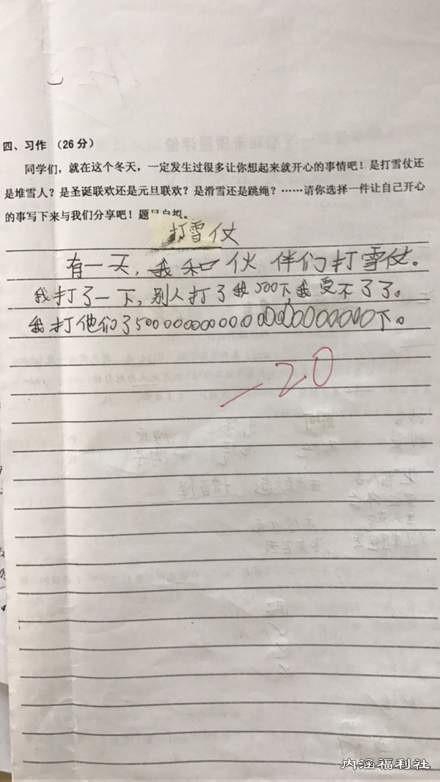 四、习作（26分）
同学们，就在这个冬天，一定发生过很多让你想起来就开心的事情吧！是打雪仗还
是堆雪人？是圣诞联欢还是元旦联欢？是滑雪还是跳绳？……请你选择一件让自己开心
的事写下来与我们分享吧！题目自拟。
打雪仗
有一天，我和伙伴们打雪仗。
我打了一下，别人打了我500下我受不了了。
我打他们了500000000000000000000000下。
-20
内涵福利社